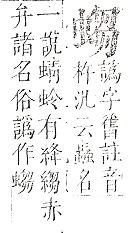 譌字舊註音
杵汎云蟲名
一說蜻蛉有絳縐赤
弁諸名俗譌作